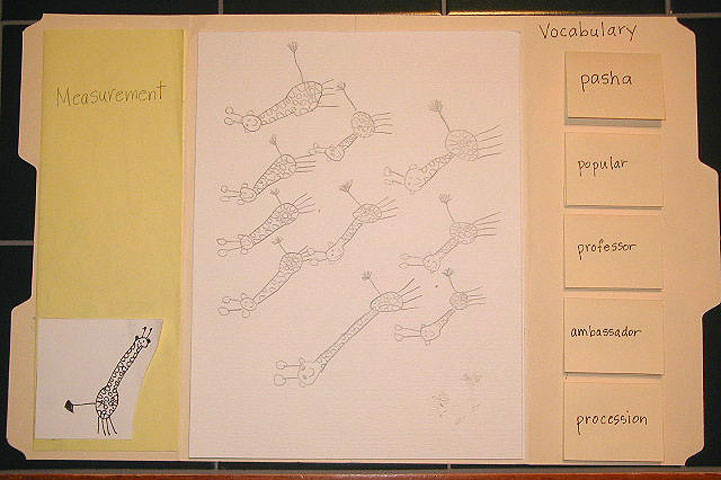 Measurement
Vocabulary
pasha
popular
professor
ambassador
procession